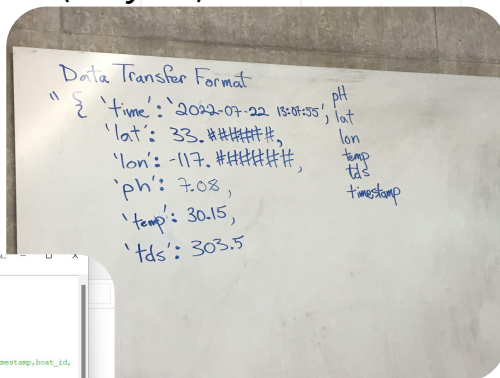 Data Transfer Format
" { 'time': '2022-07-22 13:07:55',
'lat': 33.######,
'lon': -117.######,
'ph': 7.08,
'temp': 30.15,
'tds': 303.5
pH
lat
lon
temp
tds
timestamp
mestamp,boat_id,